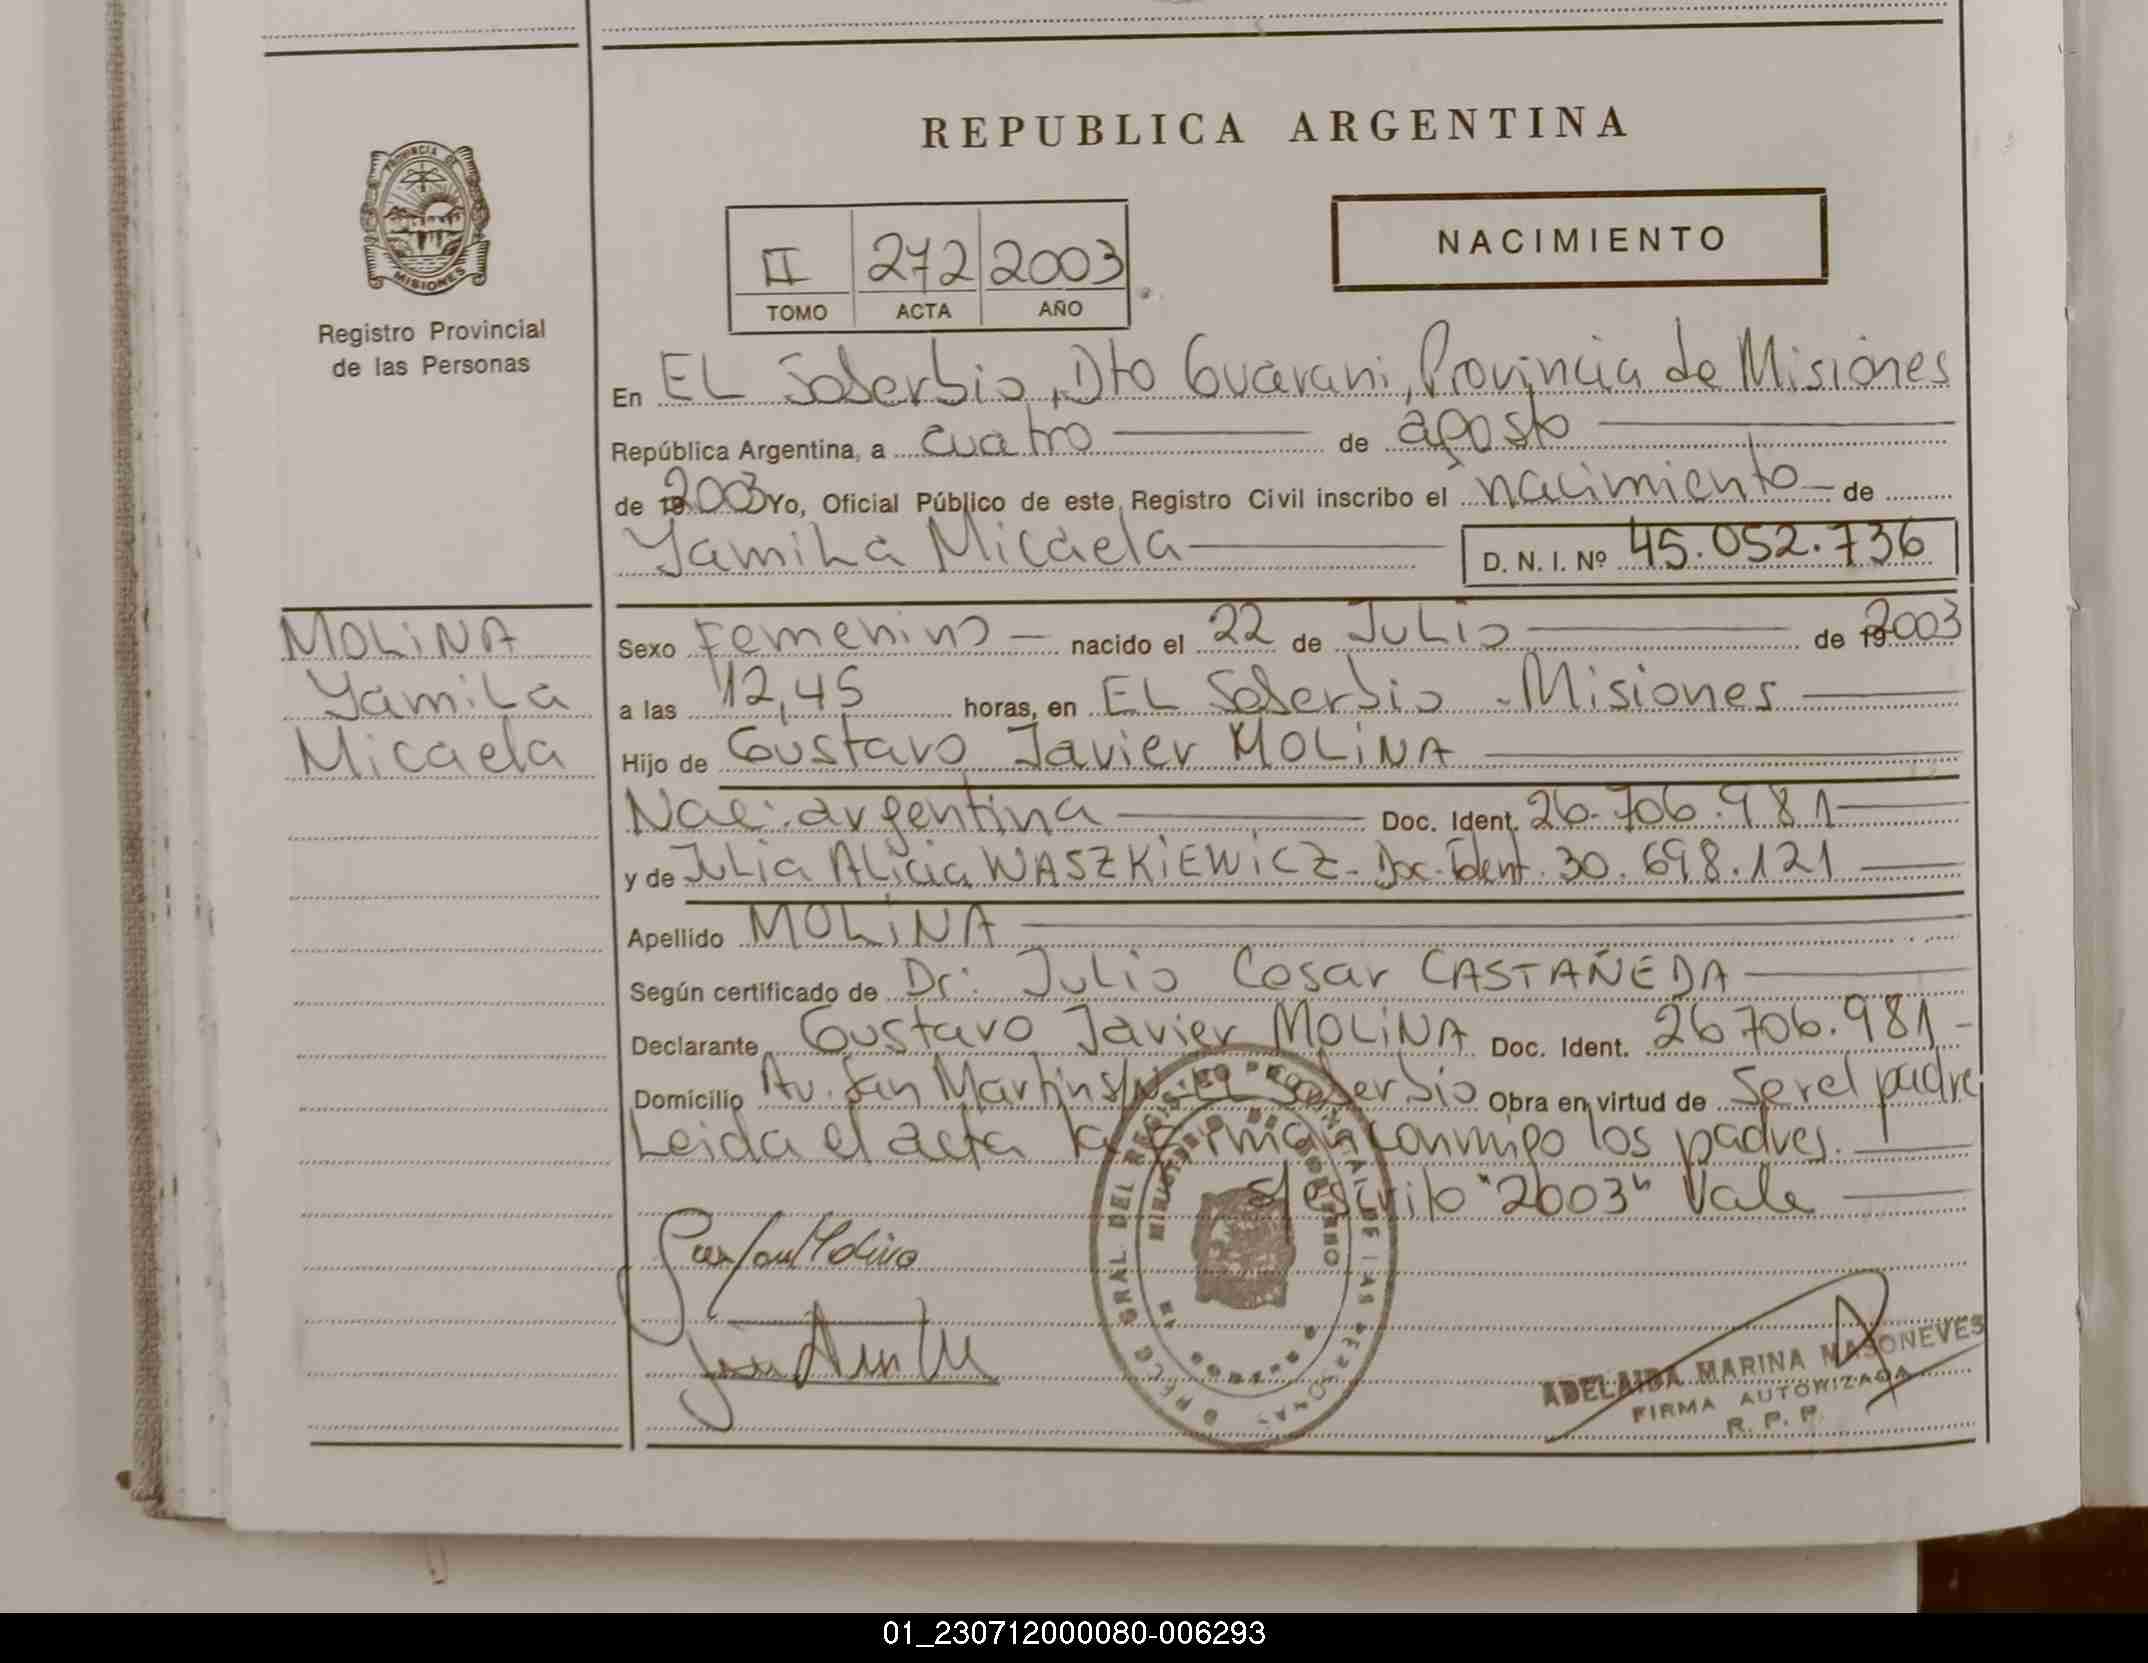 REPUBLICA ARGENTINA
PROVINCIA DE
MISIONES
Registro Provincial
de las Personas
II 272 2003
TOMO ACTA AÑO
NACIMIENTO
En EL Soberbio, Dto Guarani, Provincia de Misiones
República Argentina, a cuatro de agosto
de 2003 Yo, Oficial Público de este Registro Civil inscribo el nacimiento de
Yamila Micaela D. N. I. Nº 45.052.736
MOLINA
Yamila
Micaela
Sexo Femenino nacido el 22 de Julio de 2003
a las 12,45 horas, en EL Soberbio - Misiones
Hijo de Gustavo Javier MOLINA
Nac: argentina Doc. Ident. 26.706.981
y de Julia Alicia WASZKIEWICZ - Doc. Ident. 30.698.121
Apellido MOLINA
Según certificado de Dr: Julio Cesar CASTAÑEDA
Declarante Gustavo Javier MOLINA Doc. Ident. 26706.981
Domicilio Av. San Martin s/Nº EL Soberbio Obra en virtud de Ser el padre
Leida el acta la firman conmigo los padres.
S/escrito "2003" Vale
ADELAIDA MARINA MASONEVES
FIRMA AUTORIZADA
R. P. P.
01_230712000080-006293